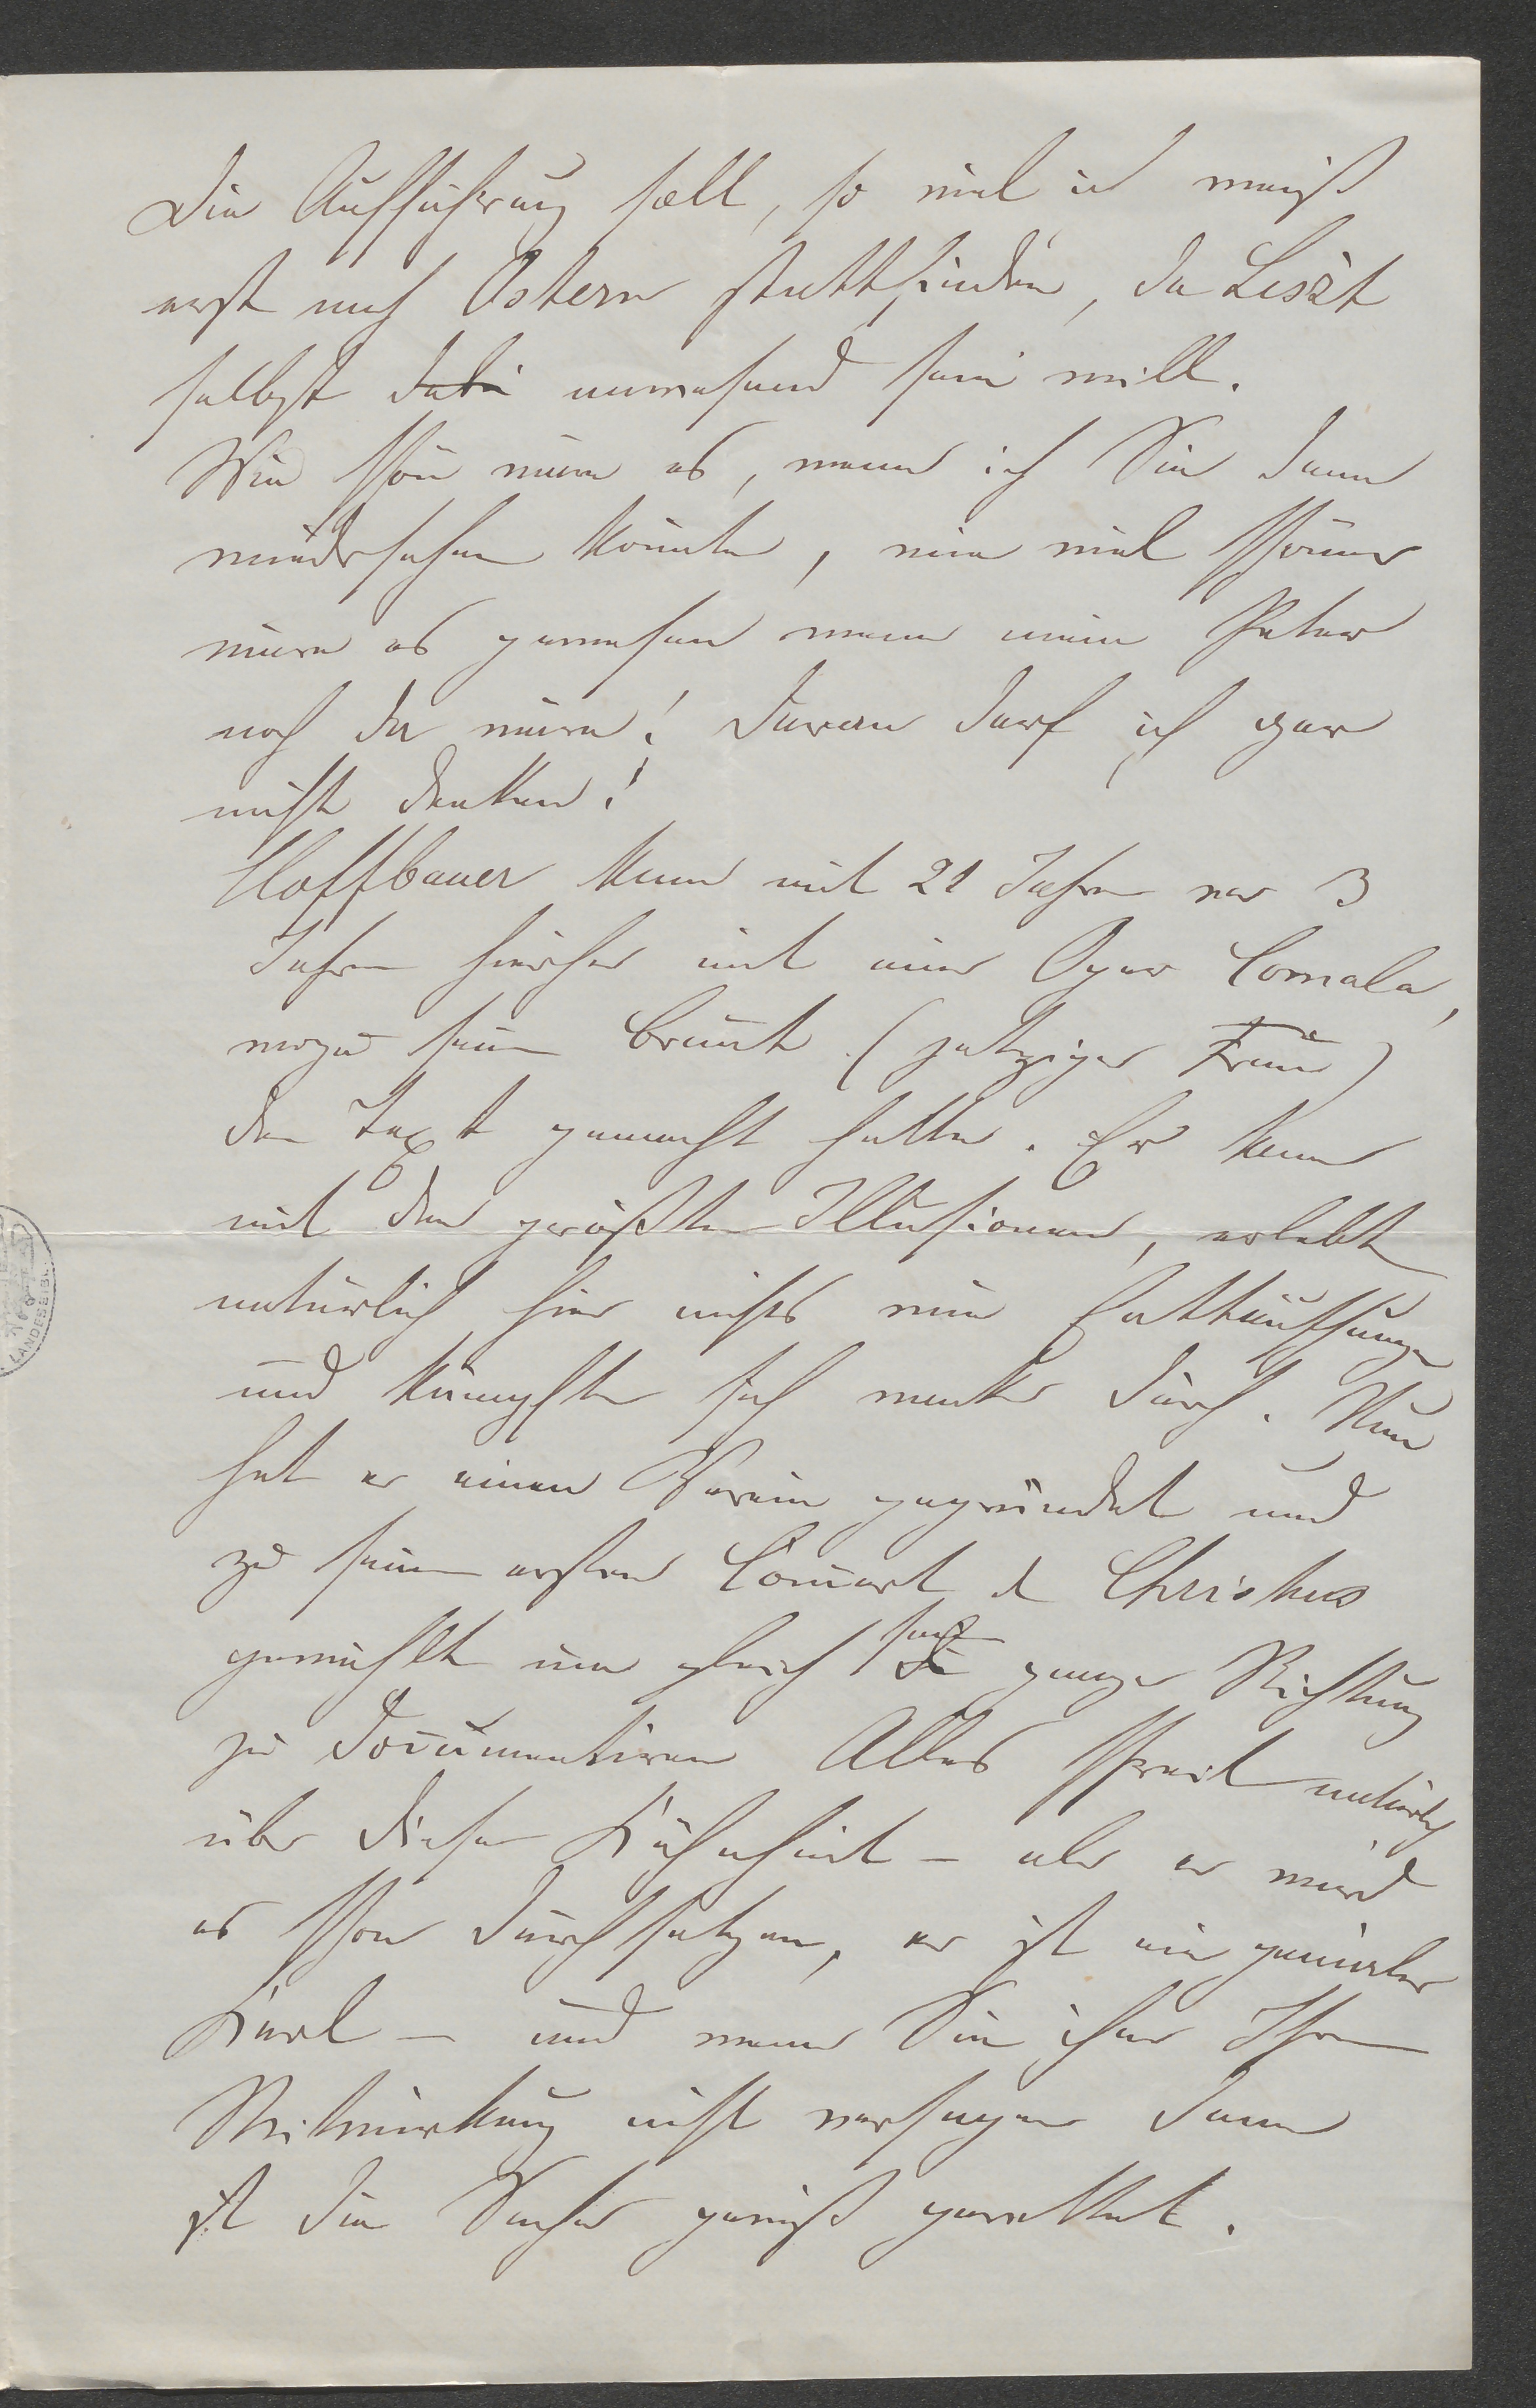 Die Aufführung soll, so viel ich weiß
erst nach Ostern stattfinden, da Liszt
selbst dabei anwesend sein will.
Wie schön wäre es, wenn ich Sie dann
wiedersehen könnte, wie viel schöner
wäre es gewesen wenn mein Peter
noch da wäre! Daran darf ich gar
nicht denken!
Hoffbauer kam mit 21 Jahren vor 3
Jahren hierher mit einer Oper Comala,
wozu seine Braut (jetzige Frau)
den Text gemacht hatte. Er kam
mit den größten Illusionen, erlebte
natürlich hier nichts wie Enttäuschungen
und kämpfte sich wacker durch. Nun
hat er einen Verein gegründet und
zu seinem ersten Concert d. Christus
gewählt um gleich seine ganze Richtung
zu documentiren Alles schreit natürlich
über diese Kühnheit – aber er wird
es schon durchsetzen, er ist ein genialer
Kerl – und wenn Sie ihm Ihre
Mitwirkung nicht versagen dann
ist die Sache gewiß gerettet.
LANDESBIBL